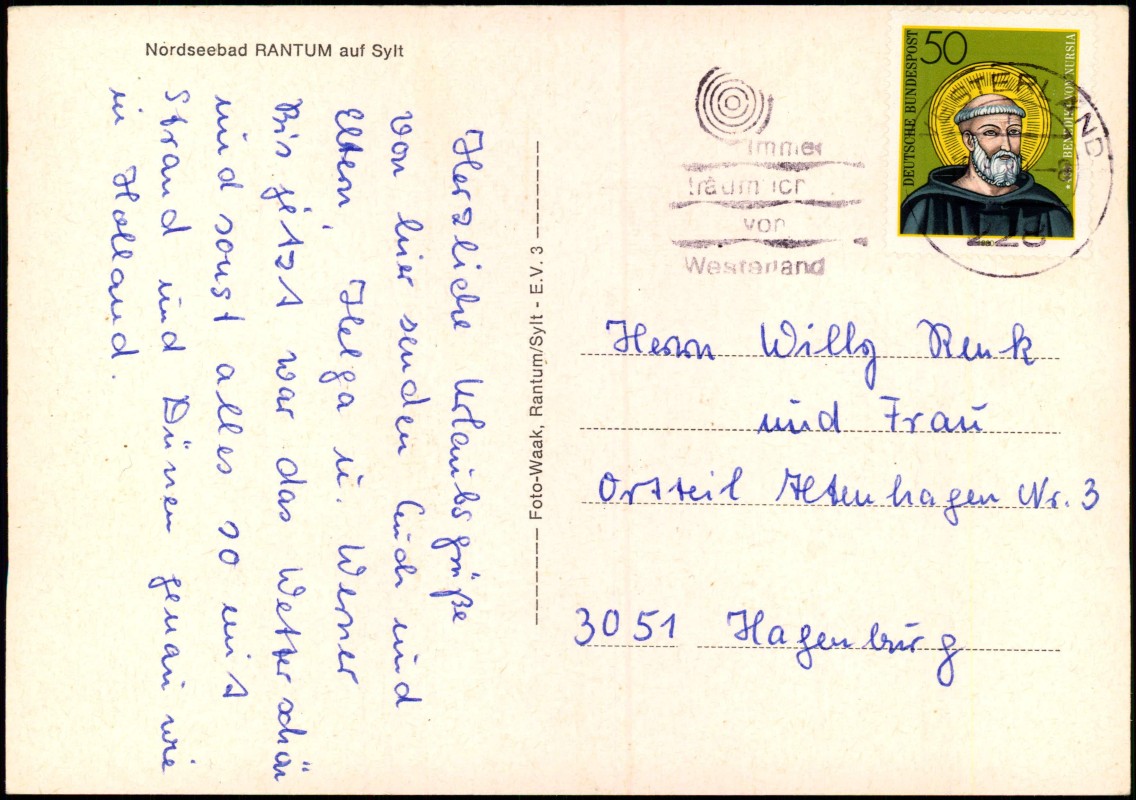 Nordseebad RANTUM auf Sylt
Herzliche Urlaubsgrüße
von hier senden Euch und
Eltern, Helga u. Werner
Bis jetzt war das Wetter schön
und sonst alles so mit
Strand und Dünen genau wie
in Holland.
Foto-Waak, Rantum/Sylt - E.V. 3
immer
träum ich
von
Westerland
DEUTSCHE BUNDESPOST
50
BENEDIKT VON NURSIA
1980
WESTERLAND
228
Herrn Willy Renk
und Frau
Ortsteil Altenhagen Nr. 3
3051 Hagenburg